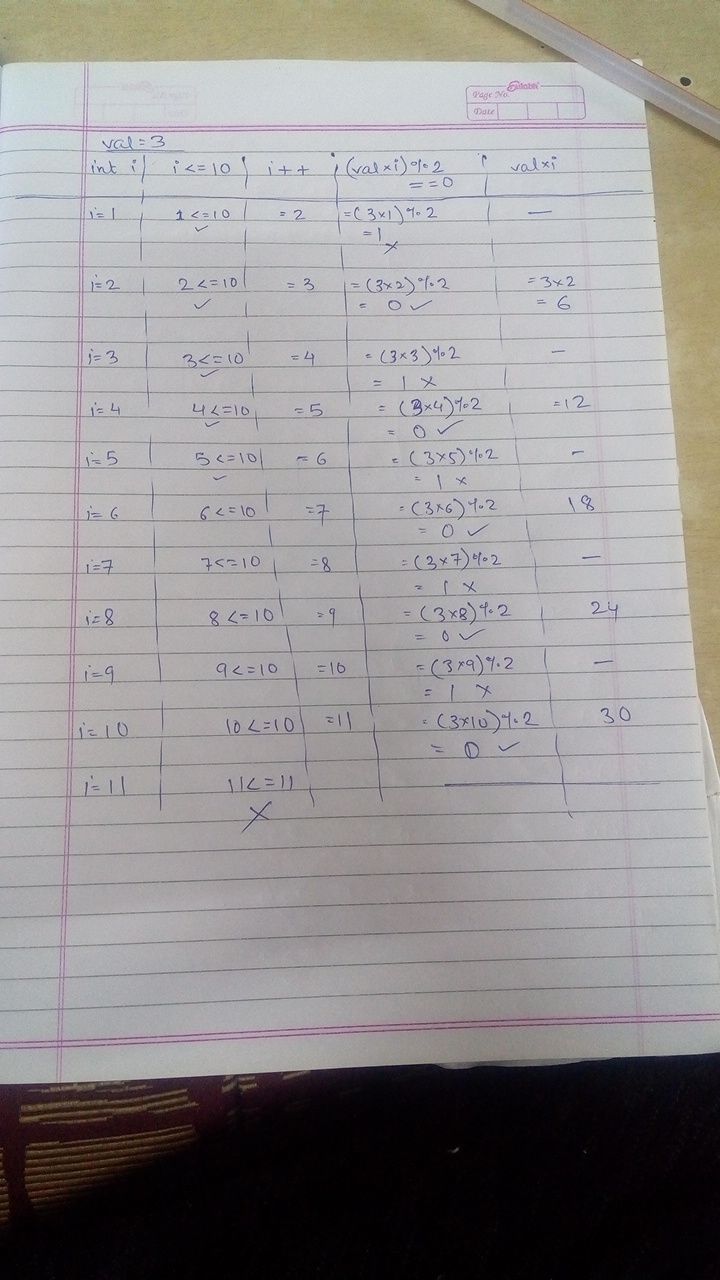 Page No.
Date
val = 3
int i | i <= 10 | i++ | (val×i)%2 | val×i
==0
i=1 | 1<=10 | =2 | =(3×1)%2 | —
✓ =1
×
i=2 | 2<=10 | =3 | =(3×2)%2 | =3×2
✓ = 0 ✓ = 6
i=3 | 3<=10 | =4 | =(3×3)%2 | —
✓ = 1 ×
i=4 | 4<=10 | =5 | =(3×4)%2 | =12
✓ = 0 ✓
i=5 | 5<=10 | =6 | =(3×5)%2 | —
✓ = 1 ×
i=6 | 6<=10 | =7 | =(3×6)%2 | 18
= 0 ✓
i=7 | 7<=10 | =8 | =(3×7)%2 | —
= 1 ×
i=8 | 8<=10 | =9 | =(3×8)%2 | 24
= 0 ✓
i=9 | 9<=10 | =10 | =(3×9)%2 | —
= 1 ×
i=10 | 10<=10 | =11 | =(3×10)%2 | 30
= 0 ✓
i=11 | 11<=11 | | —
×